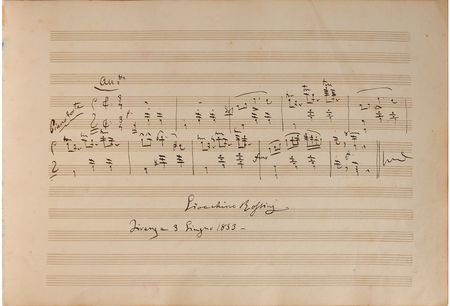 And.te
Piano forte
Gioachino Rossini
Firenze 3 Giugno 1853 –